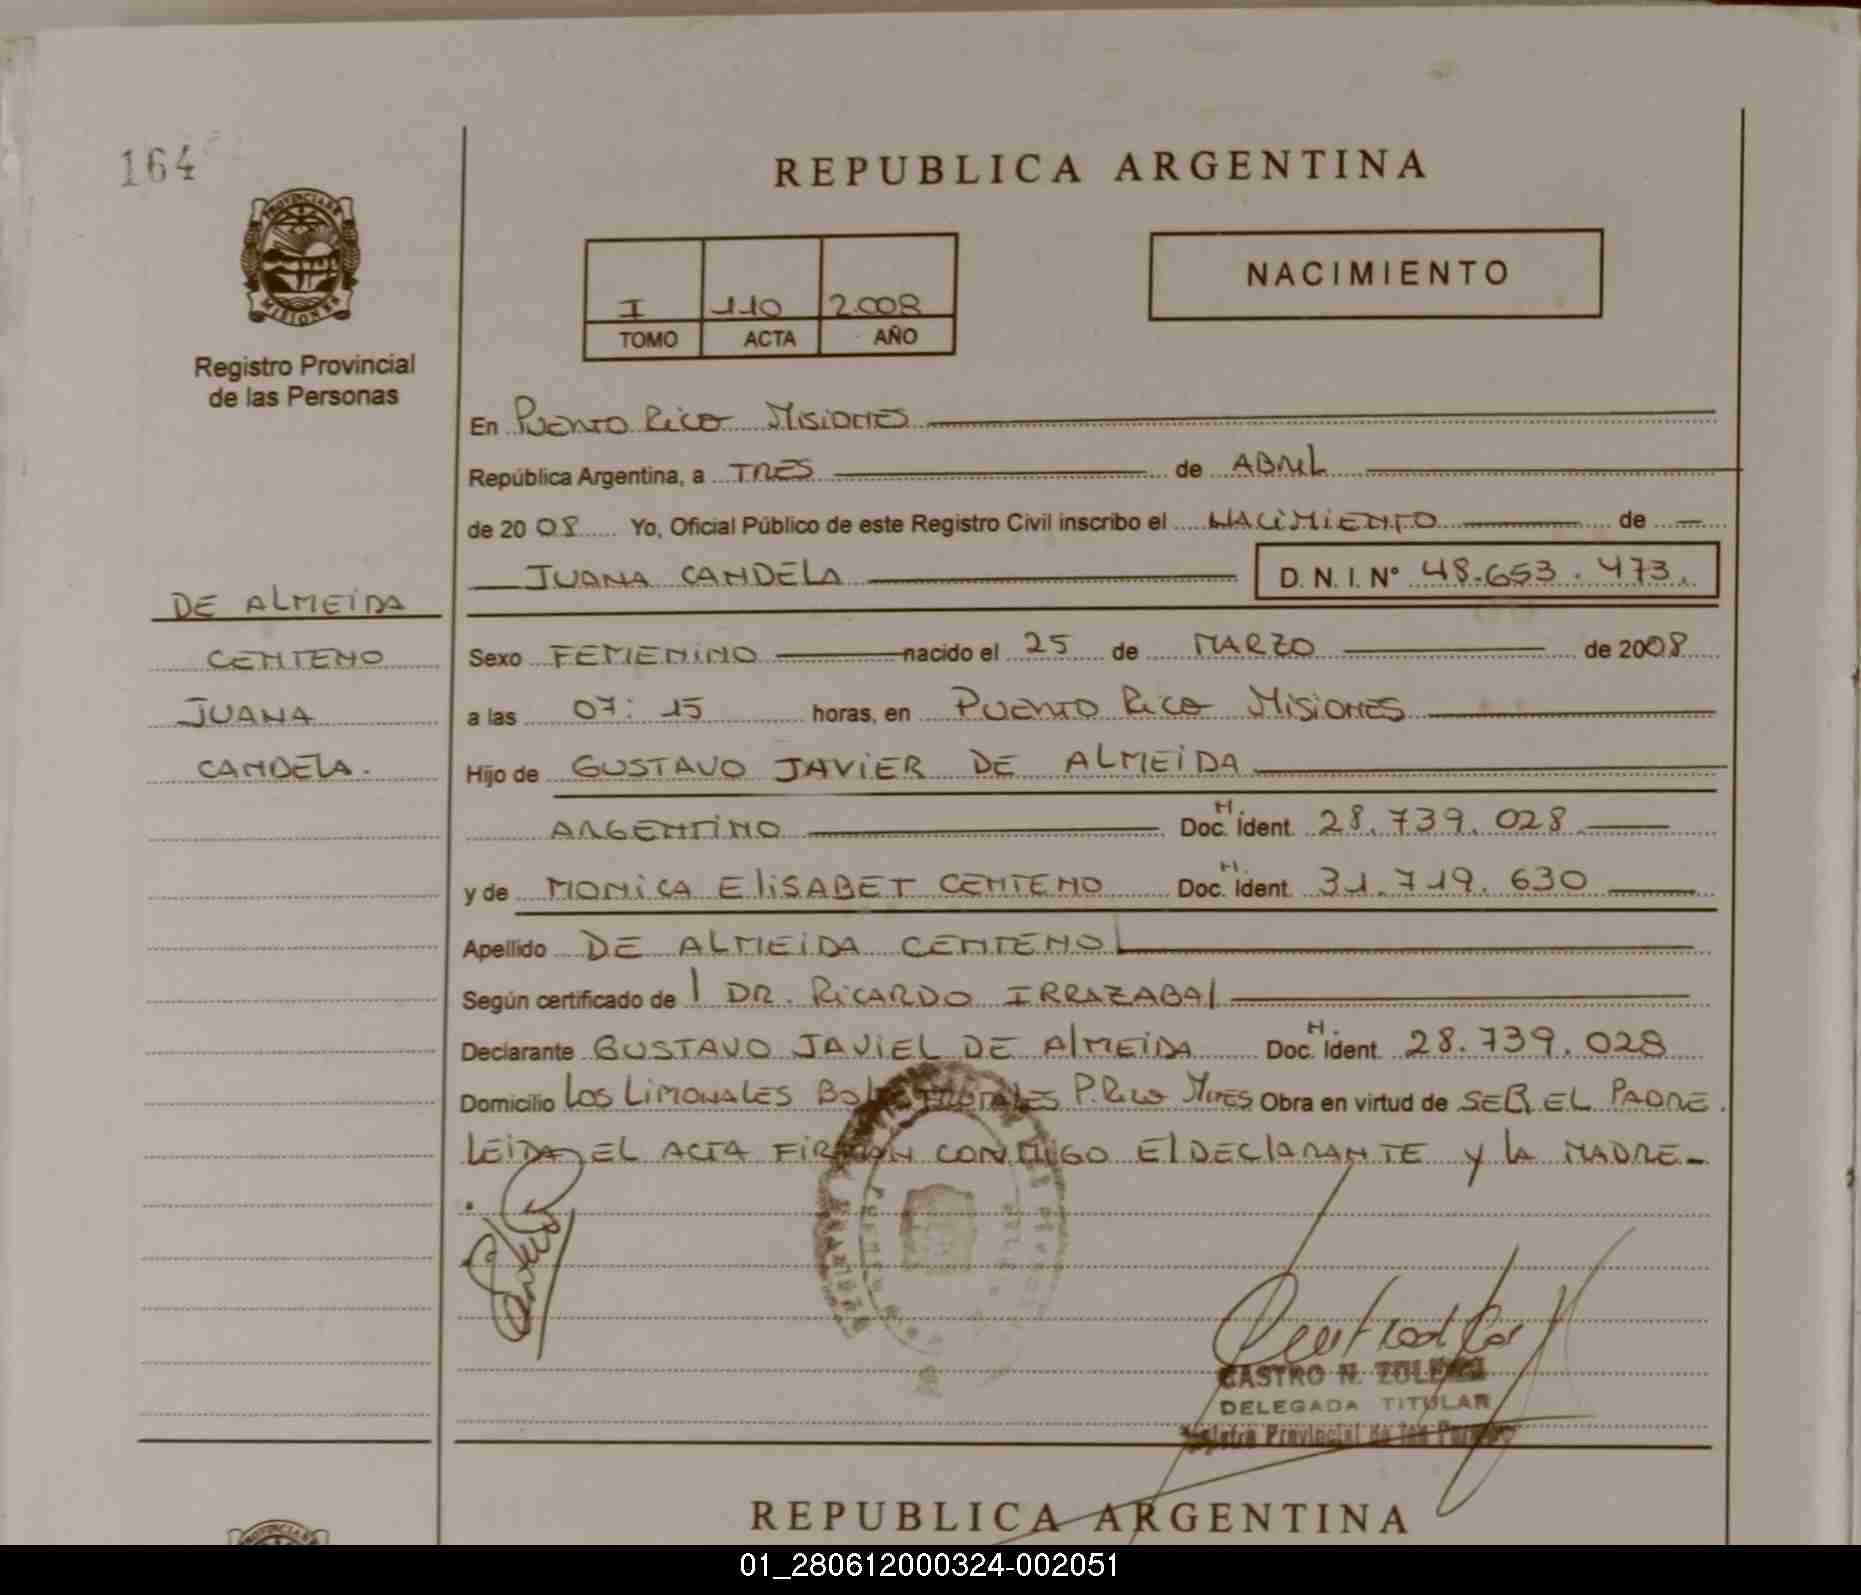 164
REPUBLICA ARGENTINA
PROVINCIA DE
MISIONES
Registro Provincial
de las Personas
I 110 2.008
TOMO ACTA AÑO
NACIMIENTO
En PUERTO RICO MISIONES
República Argentina, a TRES de ABRIL
de 2008 Yo, Oficial Público de este Registro Civil inscribo el NACIMIENTO de
JUANA CANDELA D. N. I. N° 48.653.473.
DE ALMEIDA
CENTENO
JUANA
CANDELA.
Sexo FEMENINO nacido el 25 de MARZO de 2008
a las 07:15 horas, en PUERTO RICO MISIONES
Hijo de GUSTAVO JAVIER DE ALMEIDA
ARGENTINO Doc. Ident. 28.739.028
y de MONICA ELISABET CENTENO Doc. Ident. 31.719.630
Apellido DE ALMEIDA CENTENO
Según certificado de DR. RICARDO IRRAZABAL
Declarante GUSTAVO JAVIEL DE ALMEIDA Doc. Ident. 28.739.028
Domicilio LOS LIMONALES P. RICO MNES Obra en virtud de SER EL PADRE.
LEIDA EL ACTA FIRMAN CONMIGO EL DECLARANTE Y LA MADRE
CASTRO N. ZULEMA
DELEGADA TITULAR
Registro Provincial de las Personas
REPUBLICA ARGENTINA
01_280612000324-002051